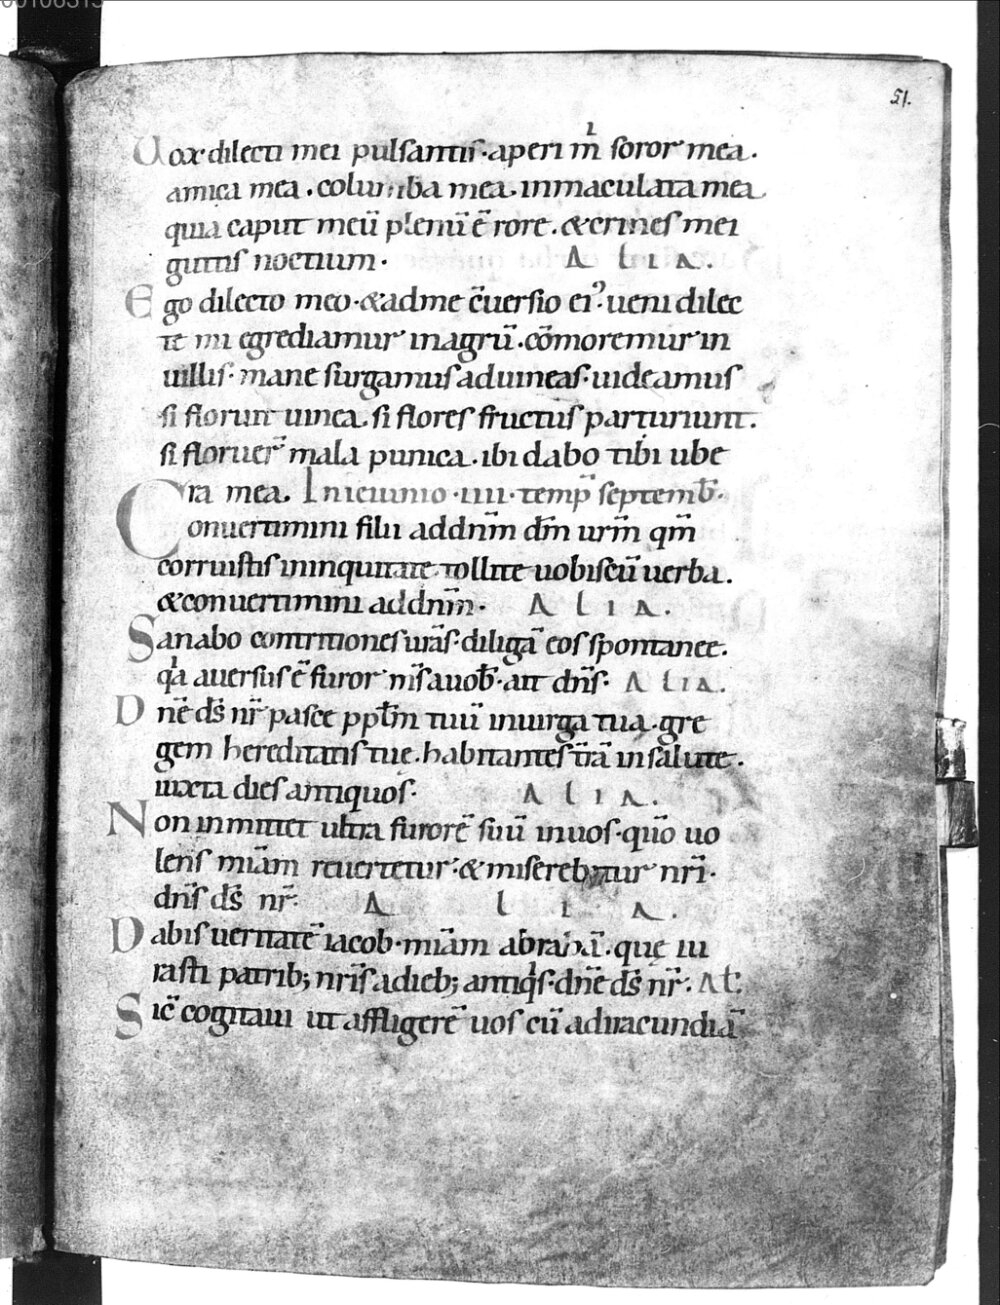 00106315
51.
Uox dilecti mei pulsantis. aperi m̄ı soror mea.
amica mea. columba mea. inmaculata mea
quia caput meū plenū ē rore. & crines mei
guttis noctium. A L I A.
Ego dilecto meo. & adme c̄uersio ei'. ueni dilec
te mi egrediamur inagrū. cōmoremur in
uillis. mane surgamus aduineas. uideamus
si floruit uinea. si flores fructus parturiunt.
si floruer̄ mala punica. ibi dabo tibi ube
ra mea. Inieiunio. iiii. temp̄ septemƀ.
Conuertimini filii addn̄m dm̄ urm̄ qm̄
corruistis ininquitate. tollite uobiscū uerba.
& conuertimini addn̄m. A L I A.
Sanabo contritiones urās. diligā eos spontanee.
qͥa auersus ē furor m̄s auoƀ. ait dn̄s. A L I A.
Dn̄e ds̄ nr̄ pasce ppłm tuū inuirga tua. gre
gem hereditatis tuę. habitantes t̄rā insalute.
iuxta dies antiquos. A L I A.
Non inmittet ultra furorē suū inuos. quō uo
lens miām reuertetur. & miserebitur nri̅.
dn̄s ds̄ nr̄. A L I A.
Dabis ueritatē iacob. miām abrahā. quę iu
rasti patrib; nrīs adieb; antiqͥs. dn̄e ds̄ nr̄. Al̄.
Sic̄ cogitaui ut affligerē uos cū adiracundiā